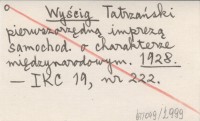 Wyścig Tatrzański
pierwszorzędną imprezą
samochod. o charakterze
międzynarodowym. 1928.
— IKC 19, nr 222.